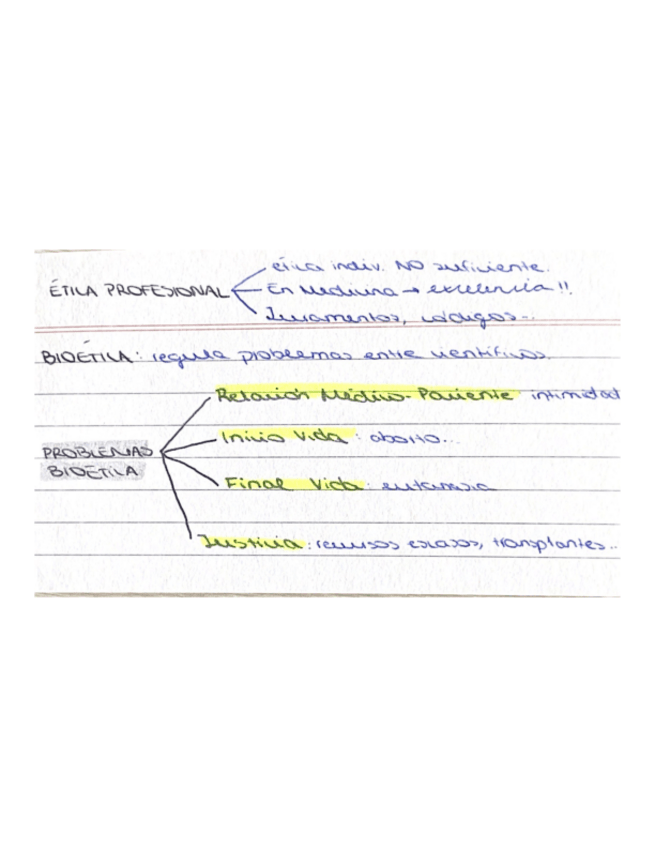 ética indiv. NO suficiente.
ÉTICA PROFESIONAL
En Medicina → excelencia !!
Juramentos, códigos...
BIOÉTICA: regula problemas entre científicos.
Relación Médico-Paciente intimidad
Inicio Vida: aborto...
PROBLEMAS
BIOÉTICA
Final Vida: eutanasia
Justicia: recursos escasos, transplantes...